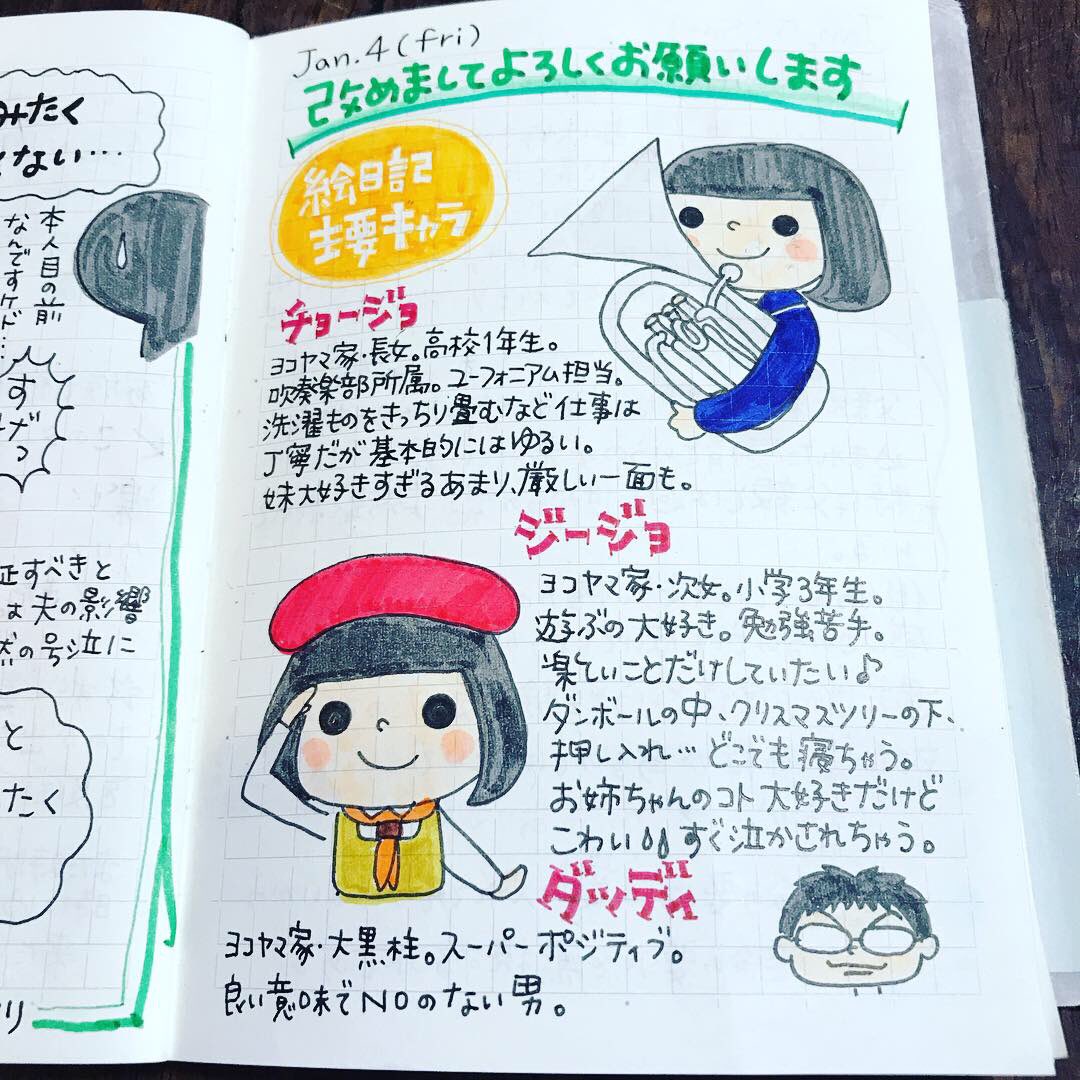 Jan.4(fri)
改めましてよろしくお願いします
絵日記
主要キャラ
チョージョ
ヨコヤマ家・長女。高校1年生。
吹奏楽部所属。ユーフォニアム担当。
洗濯ものをきっちり畳むなど仕事は
丁寧だが基本的にはゆるい。
妹大好きすぎるあまり、厳しい一面も。
ジージョ
ヨコヤマ家・次女。小学3年生。
遊ぶの大好き。勉強苦手。
楽しいことだけしていたい♪
ダンボールの中、クリスマスツリーの下、
押し入れ…どこでも寝ちゃう。
お姉ちゃんのコト大好きだけど
こわい すぐ泣かされちゃう。
ダッディ
ヨコヤマ家・大黒柱。スーパーポジティブ。
良い意味でNOのない男。
みたく
ない…
本人目の前
なんですケド…
す
げっ
正すべきと
は夫の影響
の号泣に
と
たく
リ